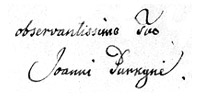 observantissimo Suo
Joanni Purkyně.